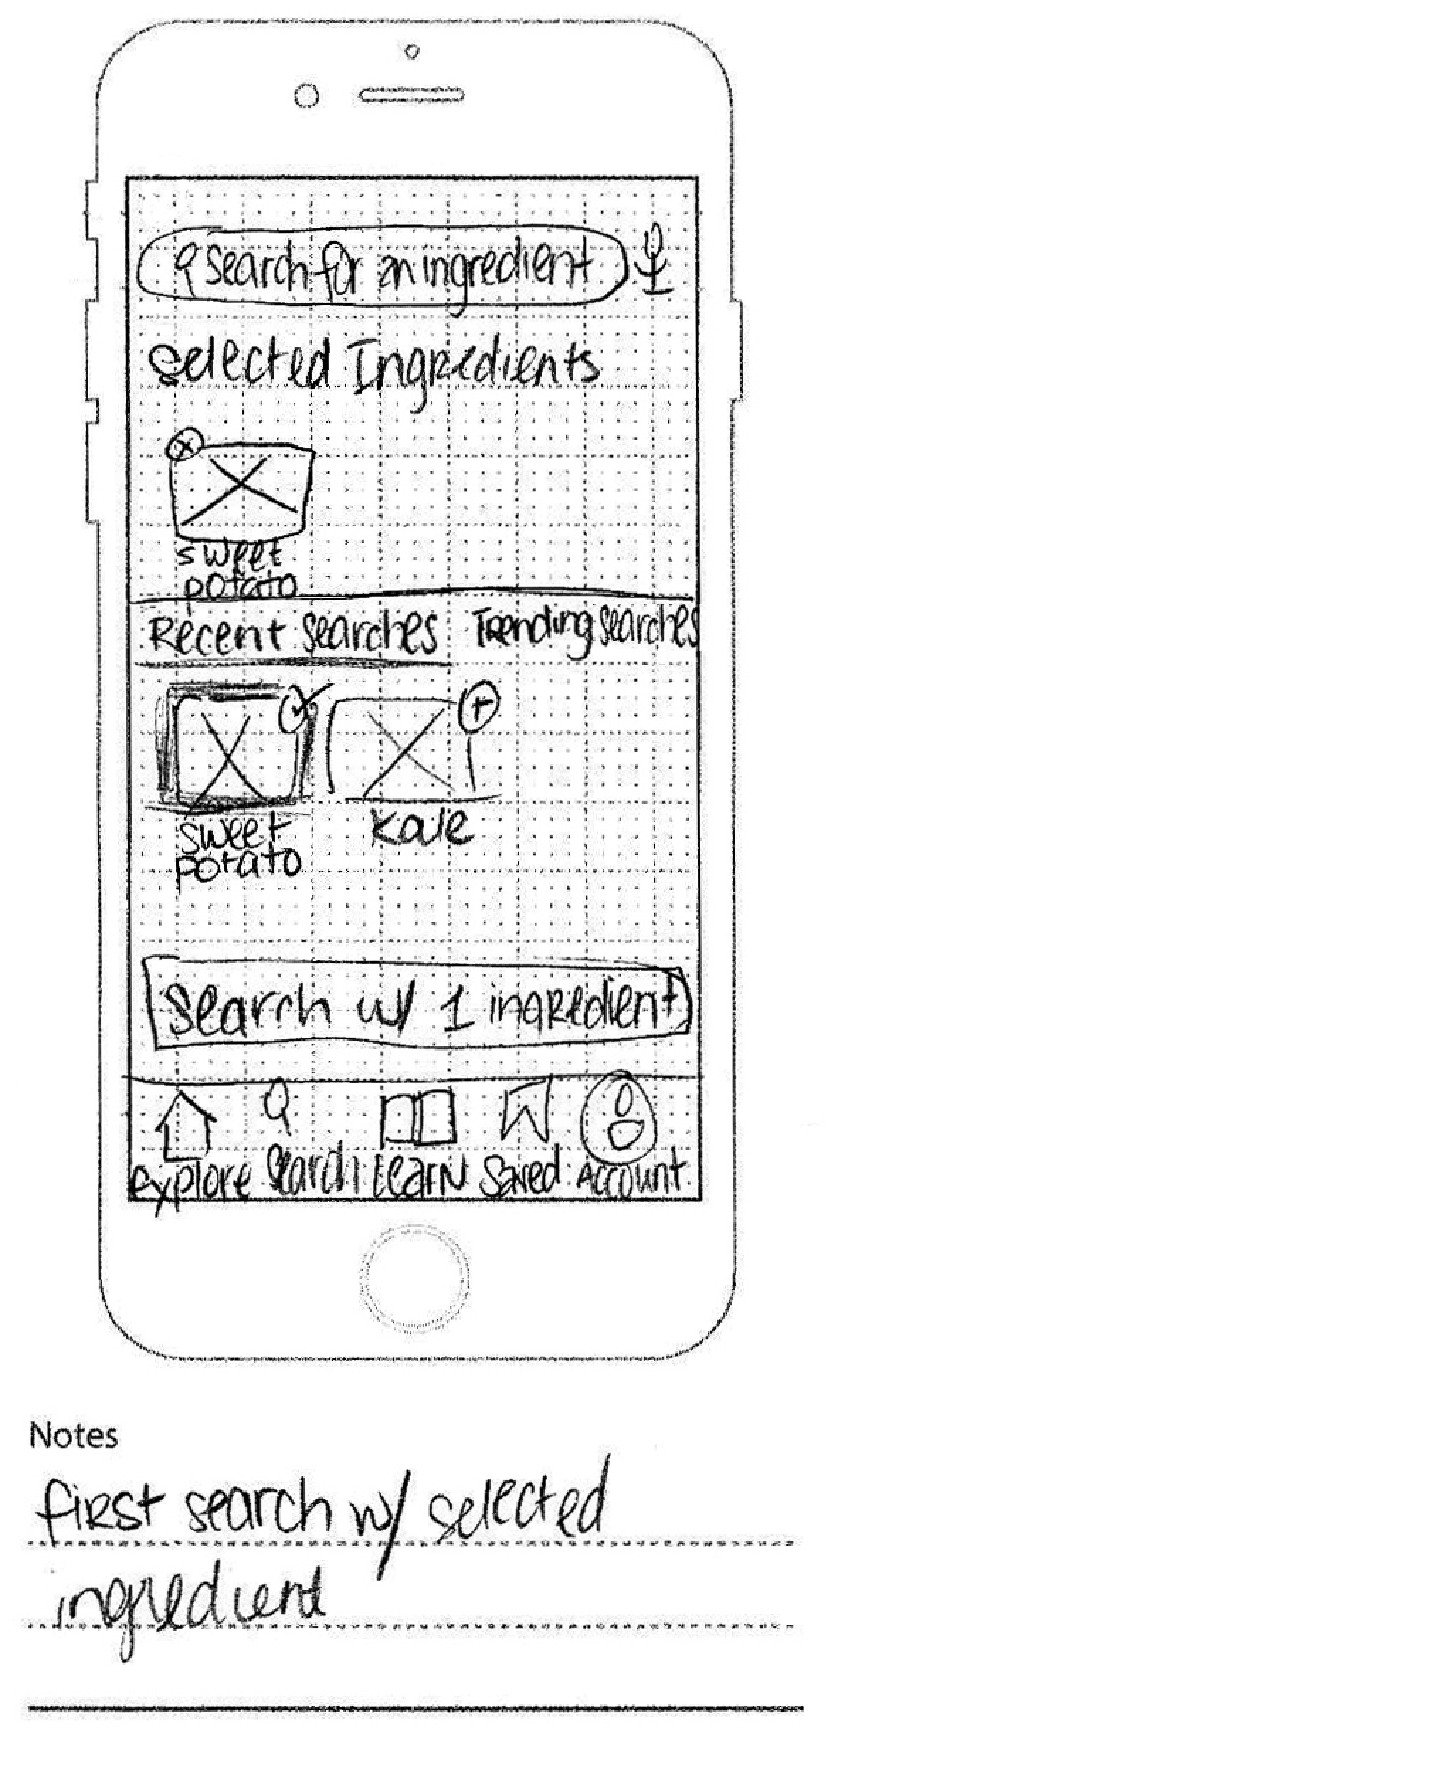 Search for an ingredient
Selected Ingredients
sweet
potato
Recent searches Trending searches
sweet
potato
Kale
Search w/ 1 ingredient
Explore Search Learn Saved Account
Notes
first search w/ selected
ingredient